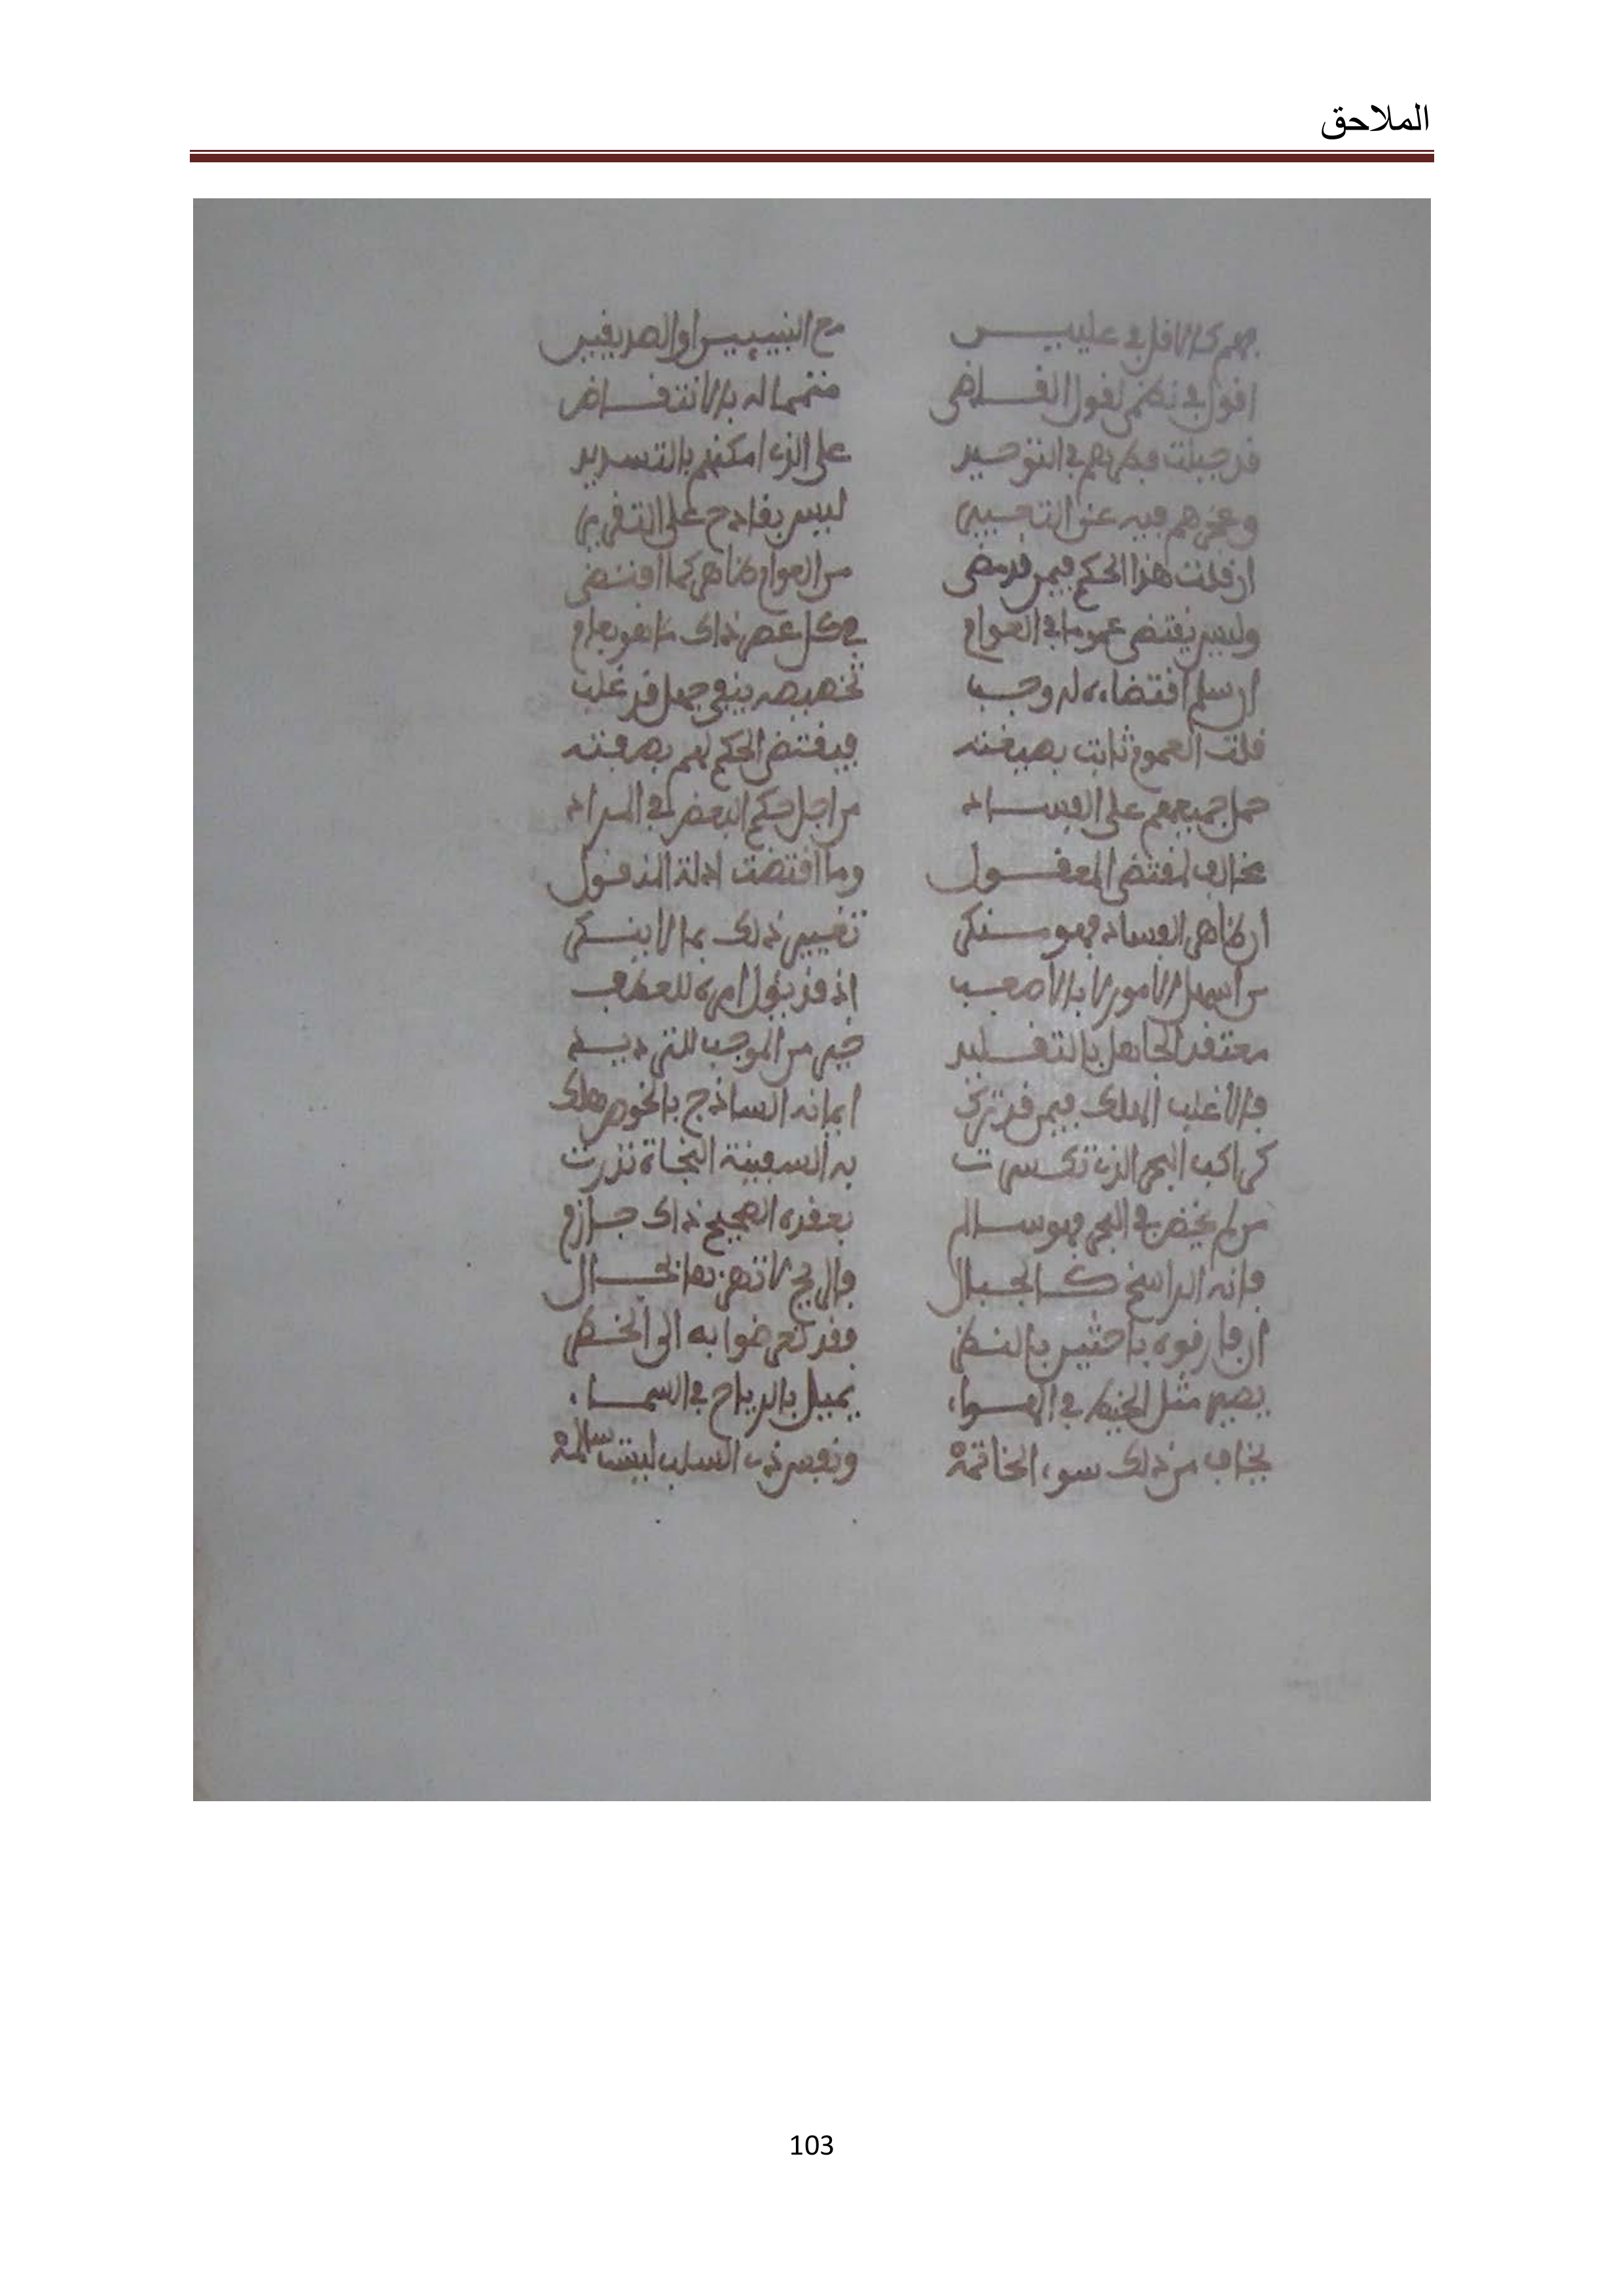 الملاحق
فهم كالاقل في عليين مع النبيين والصديقين
اقول في نظم لقول القاضي متمما له بالانتقاض
قد جبلت فطرهم في التوحيد على الذي امكنهم بالتسديد
وعجزهم فيه عن التعبير ليس بقادح على التقرير
ان قلت هذا الحكم فيمن قد مضى من العوام ظاهر كما اقتضى
وليس يقتضي عموما في العوام في كل عصر ذاك ما هو بعام
ان سلم اقتضاءه له وجب تخصيصه ينفي جهل قد غلب
قلت العموم ثابت بصيغته فيقتضي الحكم لهم بصرفته
حمل جميعهم على الفساد من اجل حكم البعض في المراد
مخالف لمقتضى المعقول وما اقتضت ادلة المنقول
ان ظاهر الفساد فهو منكر تغيير ذلك بما لا ينكر
من اسهل الامور لا بالاصعب اذ قد يئول امره للعطب
معتقد الجاهل بالتقليد خير من الموجب للترديد
فالاغلب الهلك فيمن قد ترك ايمانه الساذج بالخوض هلك
كراكب البحر الذي تكسرت به السفينة النجاة نزرت
من لم يخض في البحر فهو سالم بعقده الصحيح ذاك جازم
فانه الراسخ كالجبال فالريح لا تهزها بحال
ان فارقوه باحثين بالنظر فقد تعرضوا به الى الخطر
يصير مثل الخيط في الهواء يميل بالرياح في السماء
يخاف من ذلك سوء الخاتمة ونفس ذي السلب ليست سالمة
103